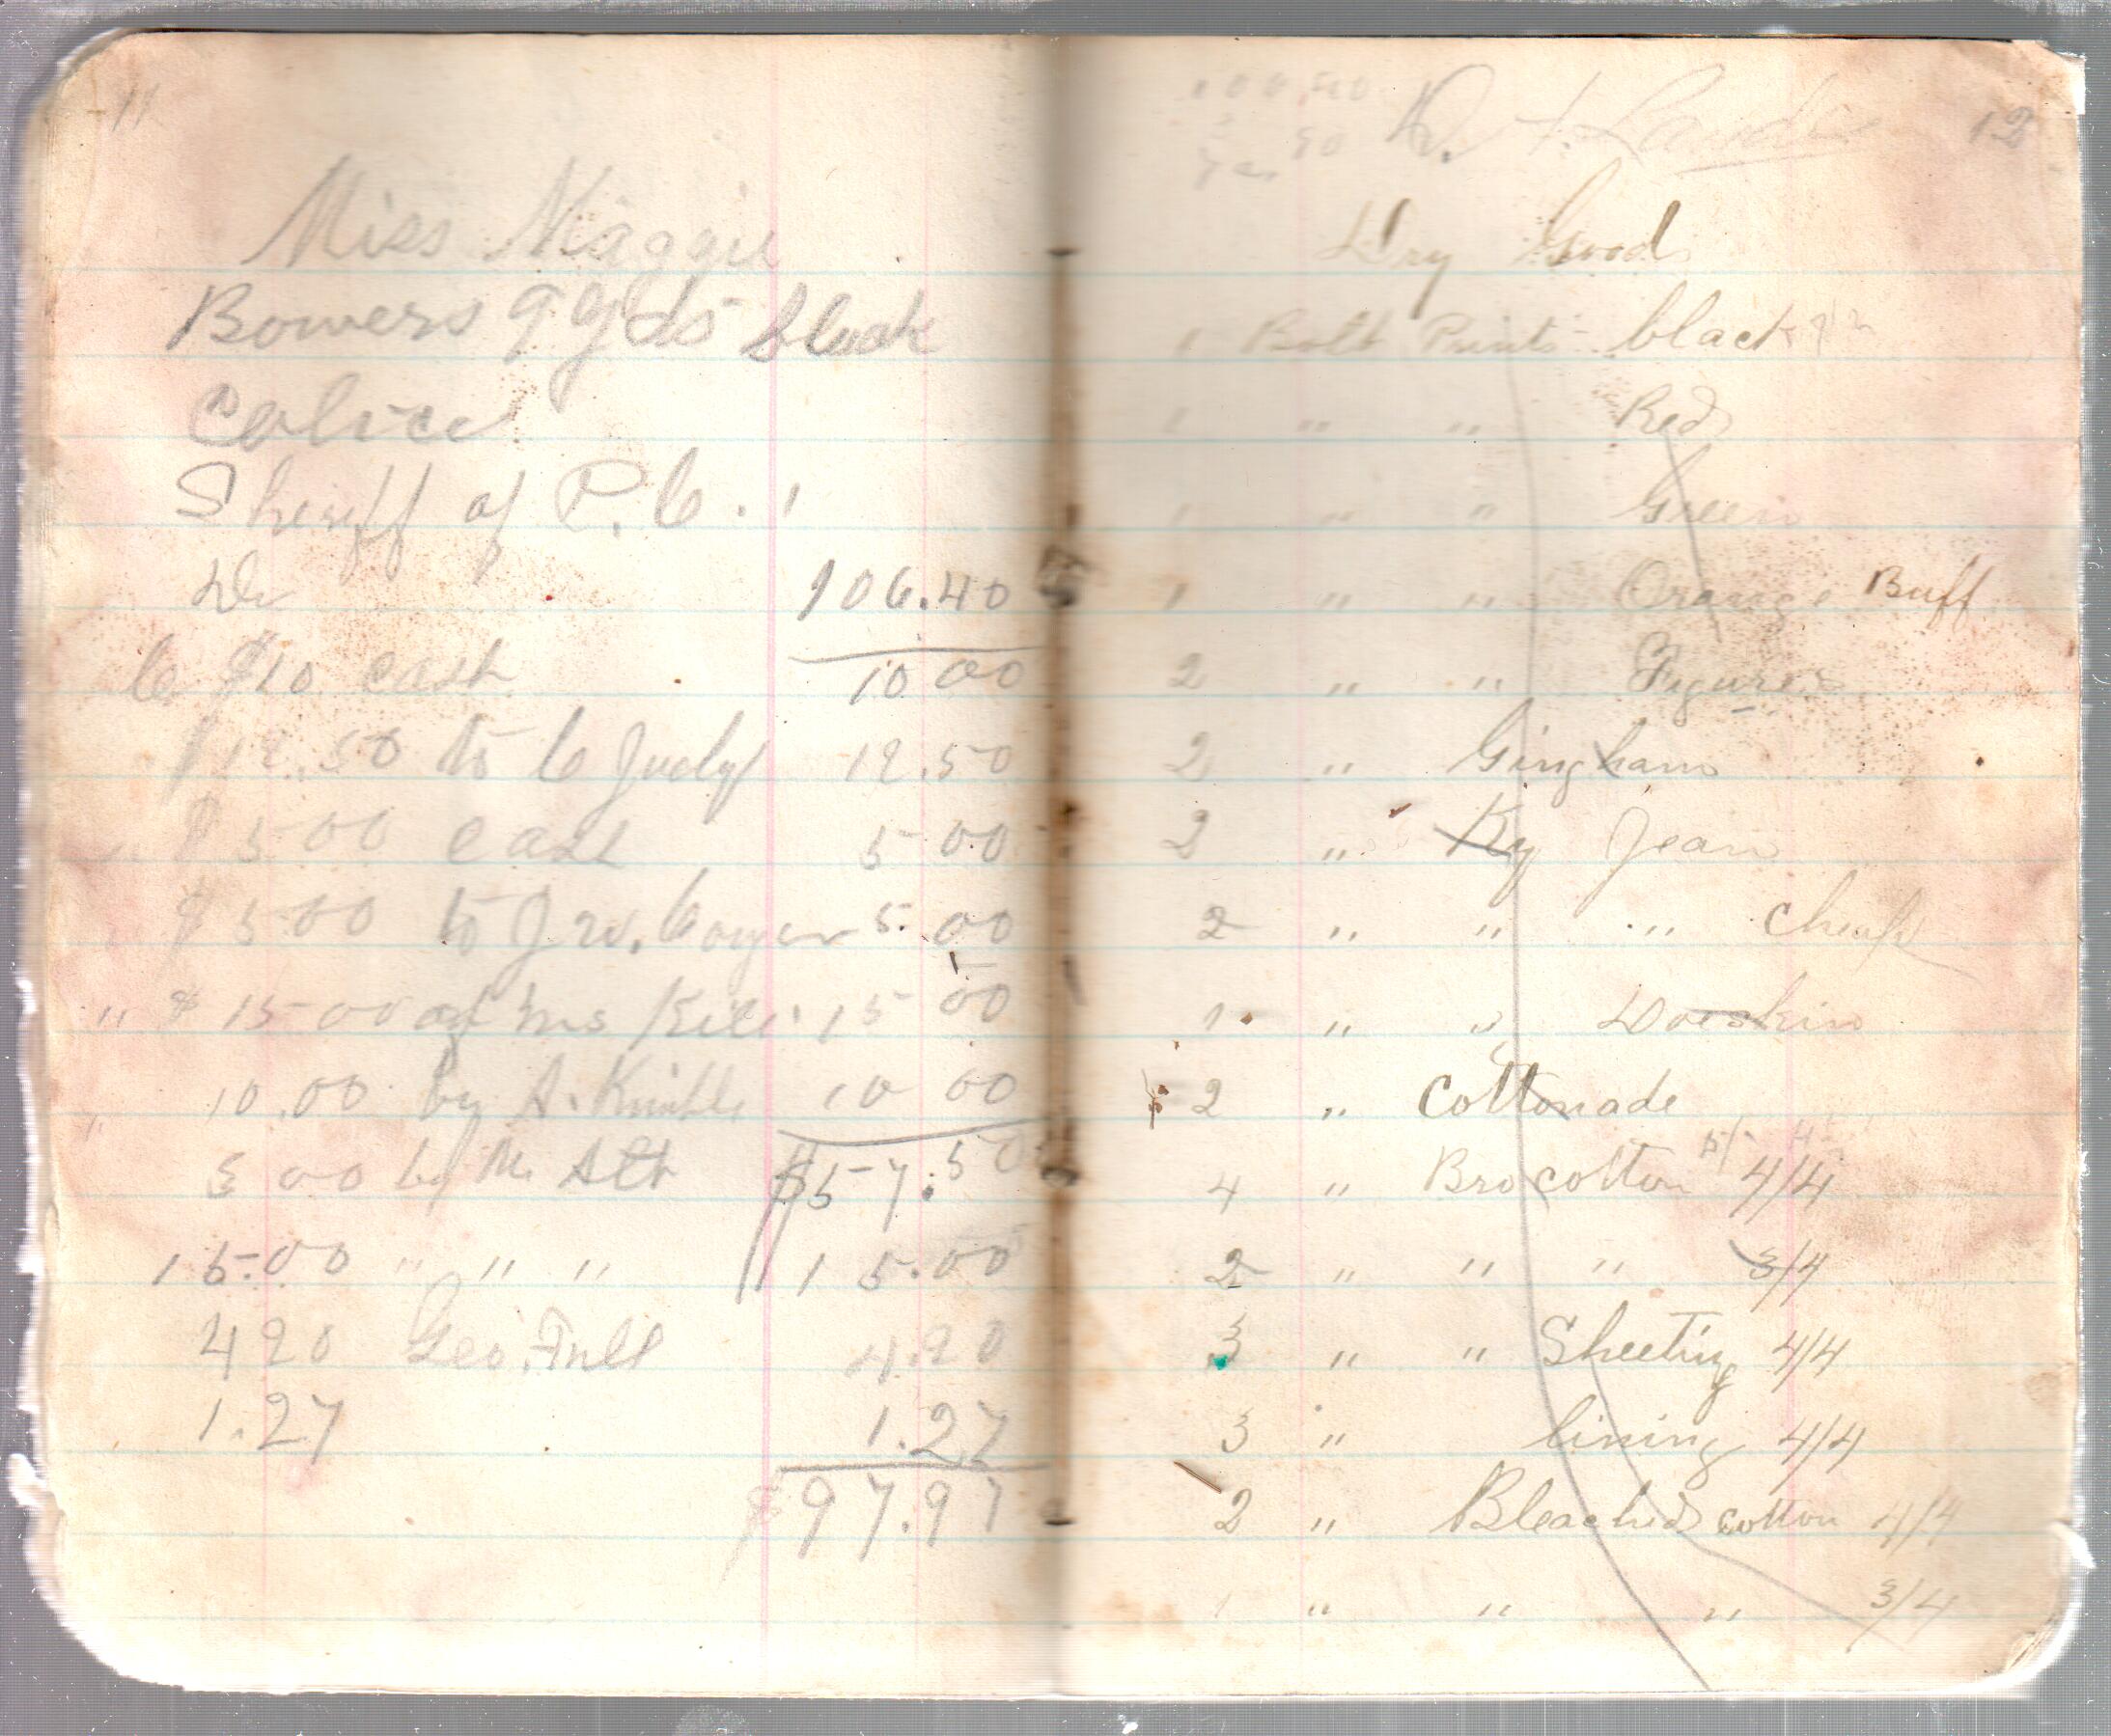 11
Miss Maggie
Bowers 9 yds black
Calico
Sheriff of P. C.
Dr 106.40
C $10 cash 10 00
$12.50 to C Judy 12.50
$5.00 cash 5.00
$5.00 to J. W. 5.00
" $15.00 15 00
" 10.00 by A. Kimble 10 00
5 00 by M. Alt $57.50
15.00 " " " 15.00
4 20 Geo. 4.20
1.27 1.27
$97.97
12
100.40
50
D.
Dry Goods
1 Bolt Prints black
1 " " Red
1 " " Green
1 " " Orange Buff
2 " " Figures
2 " Gingham
2 " Ky Jean
2 " " " cheap
1 " " Doeskin
2 " Cottonade
4 " Bro cotton 4/4
2 " " " 3/4
3 " " Sheeting 4/4
3 " lining 4/4
2 " Bleached cotton 4/4
1 " " " 3/4